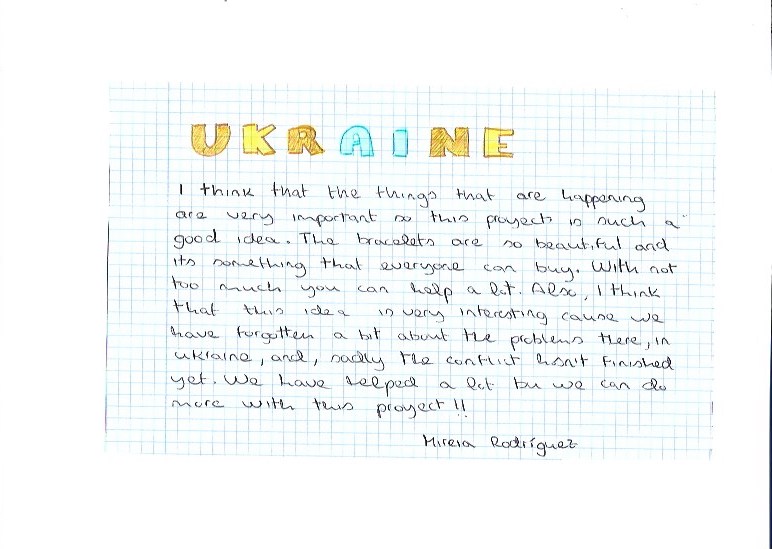 UKRAINE
I think that the things that are happening
are very important so this proyect is such a
good idea. The bracelets are so beautiful and
its something that everyone can buy. With not
too much you can help a lot. Also, I think
that this idea is very interesting cause we
have forgotten a bit about the problems there, in
Ukraine, and, sadly the conflict hasn't finished
yet. We have helped a lot bu we can do
more with this proyect!!
Mireia Rodríguez